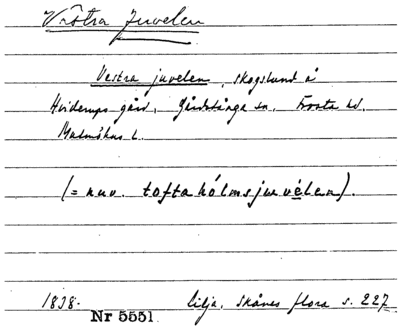 Västra Juvelen
Vestra juvelen, skogslund å
Hviderups gård, Gårdstånga sn. Frosta hd.
Malmöhus l.
(= nuv. toftahólmsjuvélen).
1838. Lilja, Skånes flora s. 227
Nr 5551.